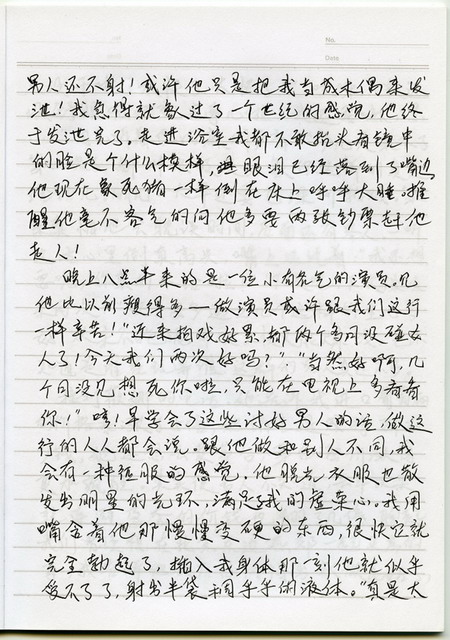 No.
Date
男人还不射！或许他只是把我当成木偶来发
泄！我觉得就象过了一个世纪的感觉，他终
于发泄完了。走进浴室我都不敢抬头看镜中
的脸是个什么模样，眼泪已经落到了嘴边
他现在象死猪一样倒在床上呼呼大睡。推
醒他毫不客气的问他多要两张钞票赶他
走人！
晚上八点半来的是一位小有名气的演员。见
他比以前瘦得多—做演员或许跟我们这行
一样辛苦！"近来拍戏好累，都两个多月没碰女
人了！今天我们两次好吗？""当然好啊，几
个月没见想死你啦，只能在电视上多看看
你！"咳！早学会了这些讨好男人的话，做这
行的人人都会说。跟他做和别人不同，我
会有一种征服的感觉。他脱光衣服也散
发出明星的光环，满足了我的虚荣心。我用
嘴含着他那慢慢变硬的东西，很快它就
完全勃起了，插入我身体那一刻他就似乎
受不了了，射出半袋稠乎乎的液体。"真是太